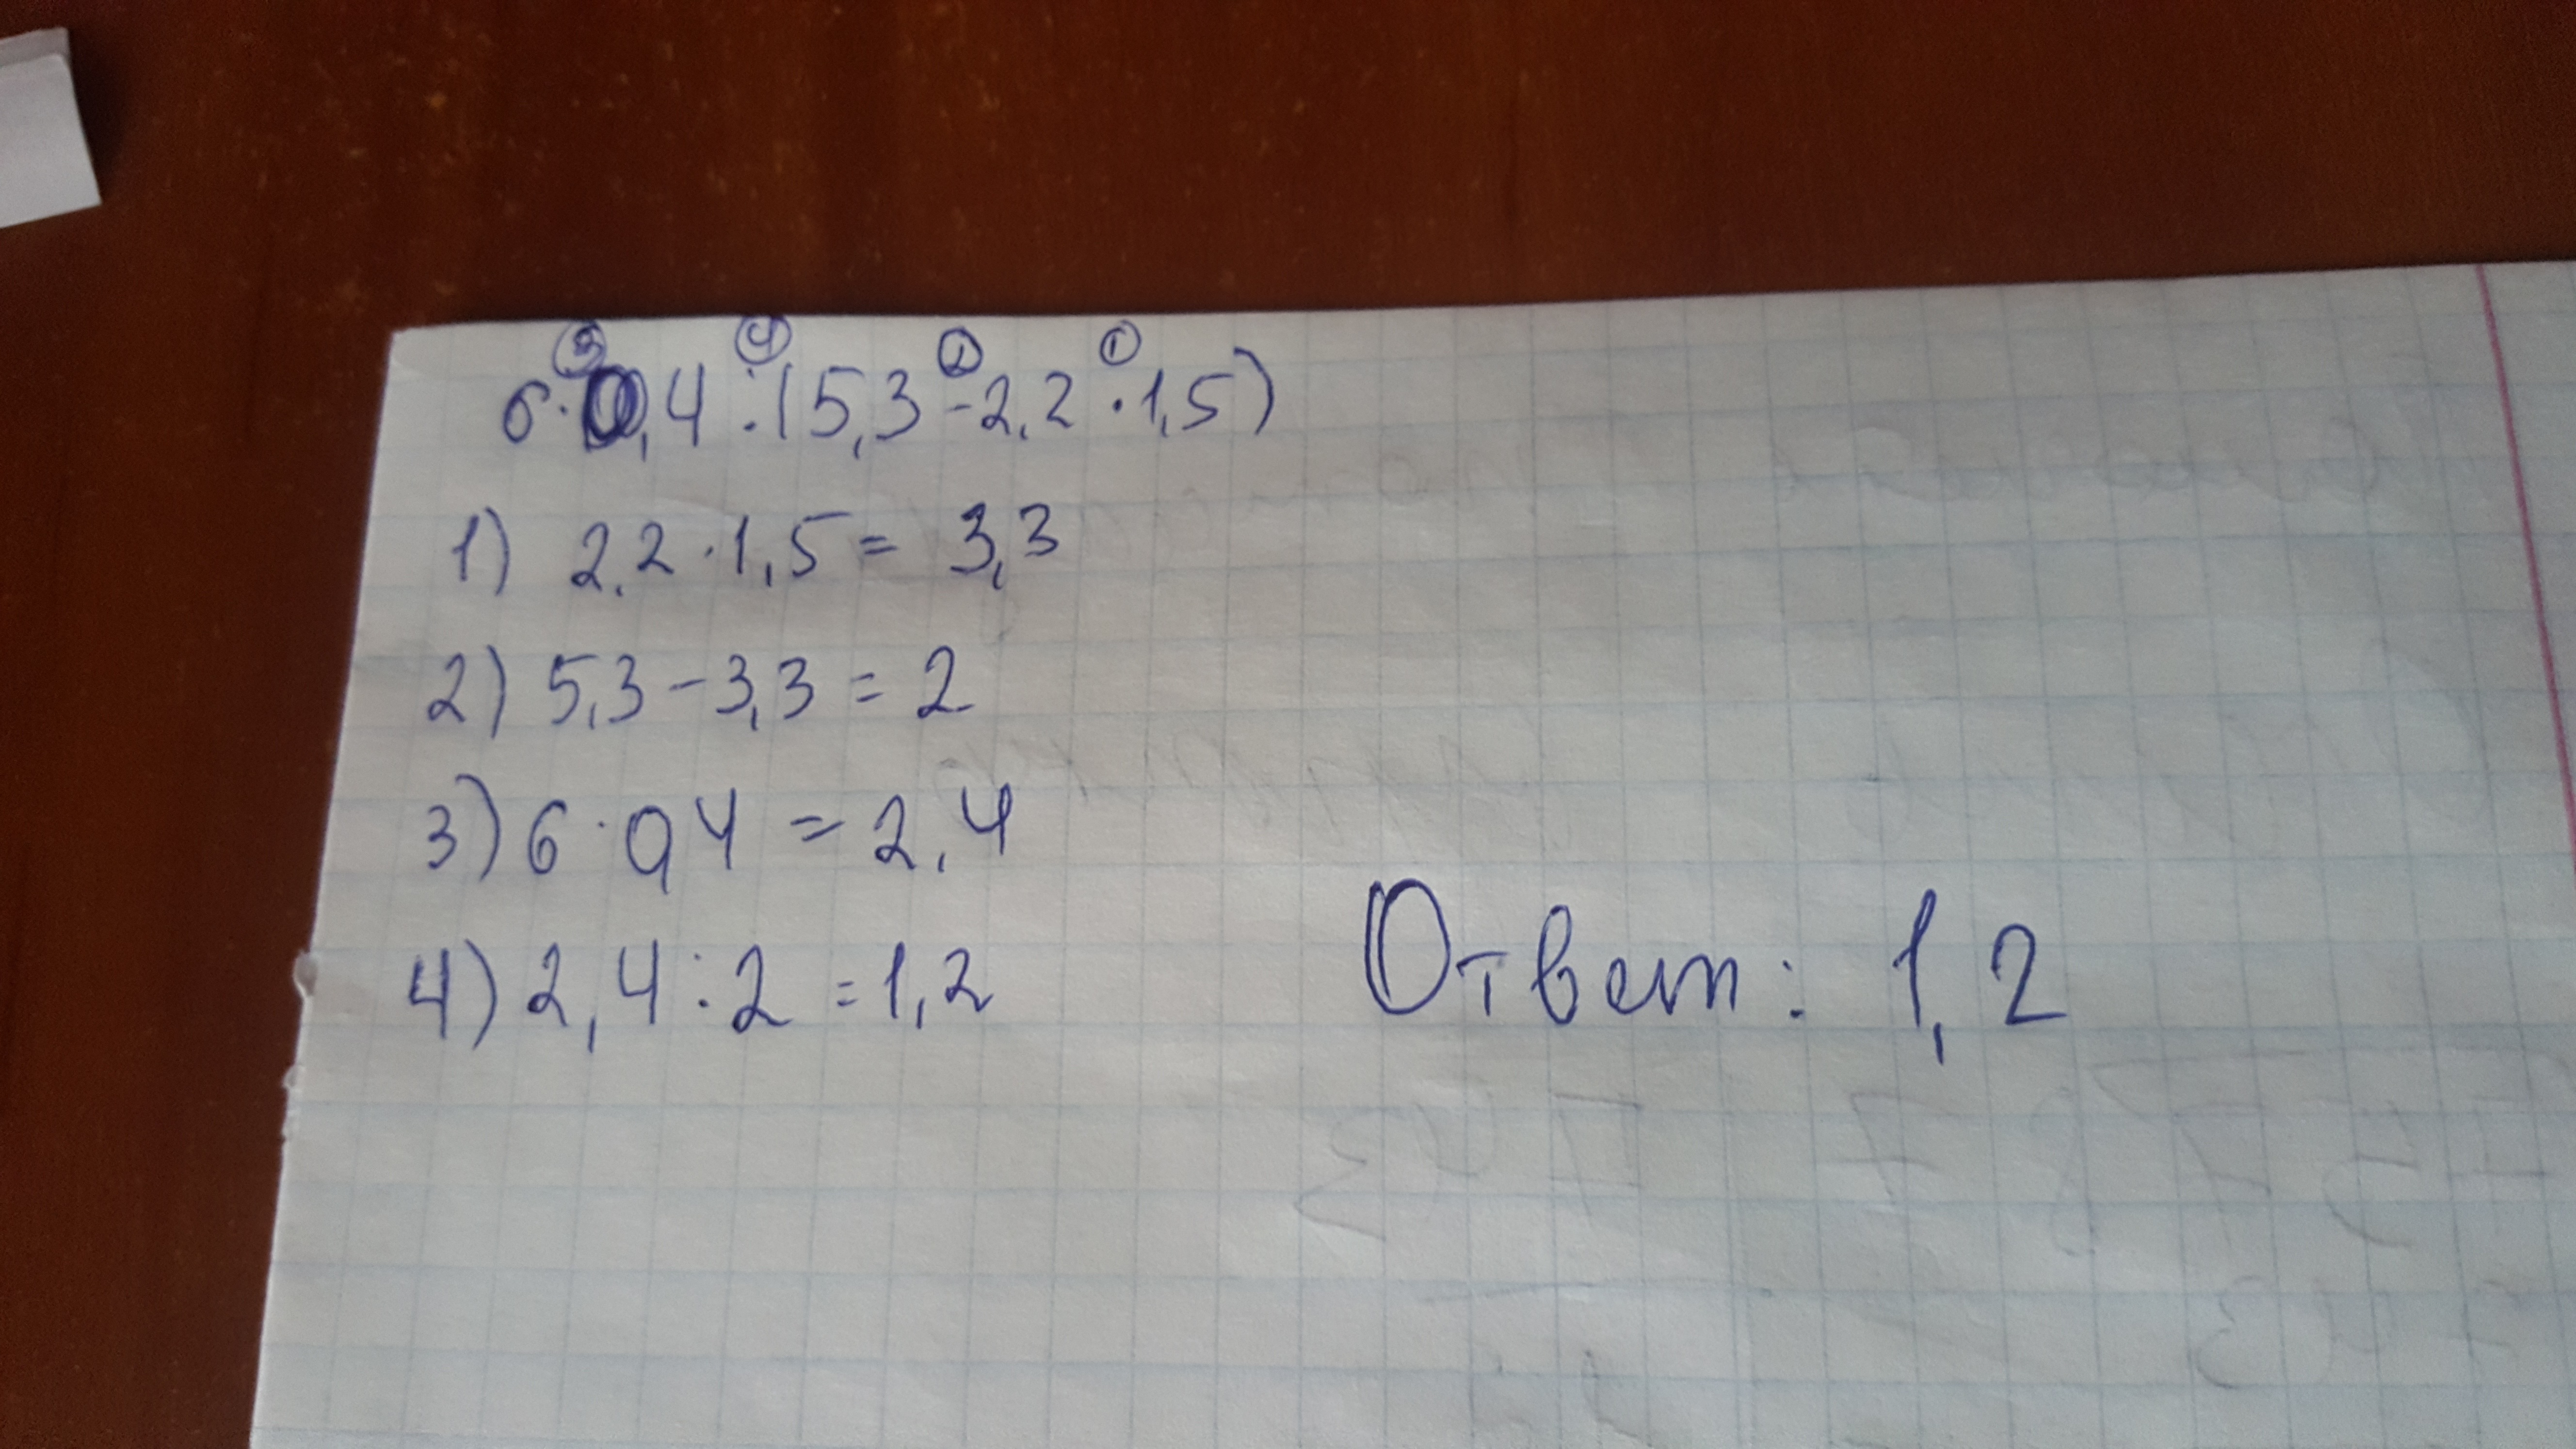 ③ ④ ② ①
6·0,4:(5,3-2,2·1,5)
1) 2,2·1,5= 3,3
2) 5,3-3,3=2
3) 6·0,4=2,4
4) 2,4:2=1,2
Ответ: 1,2